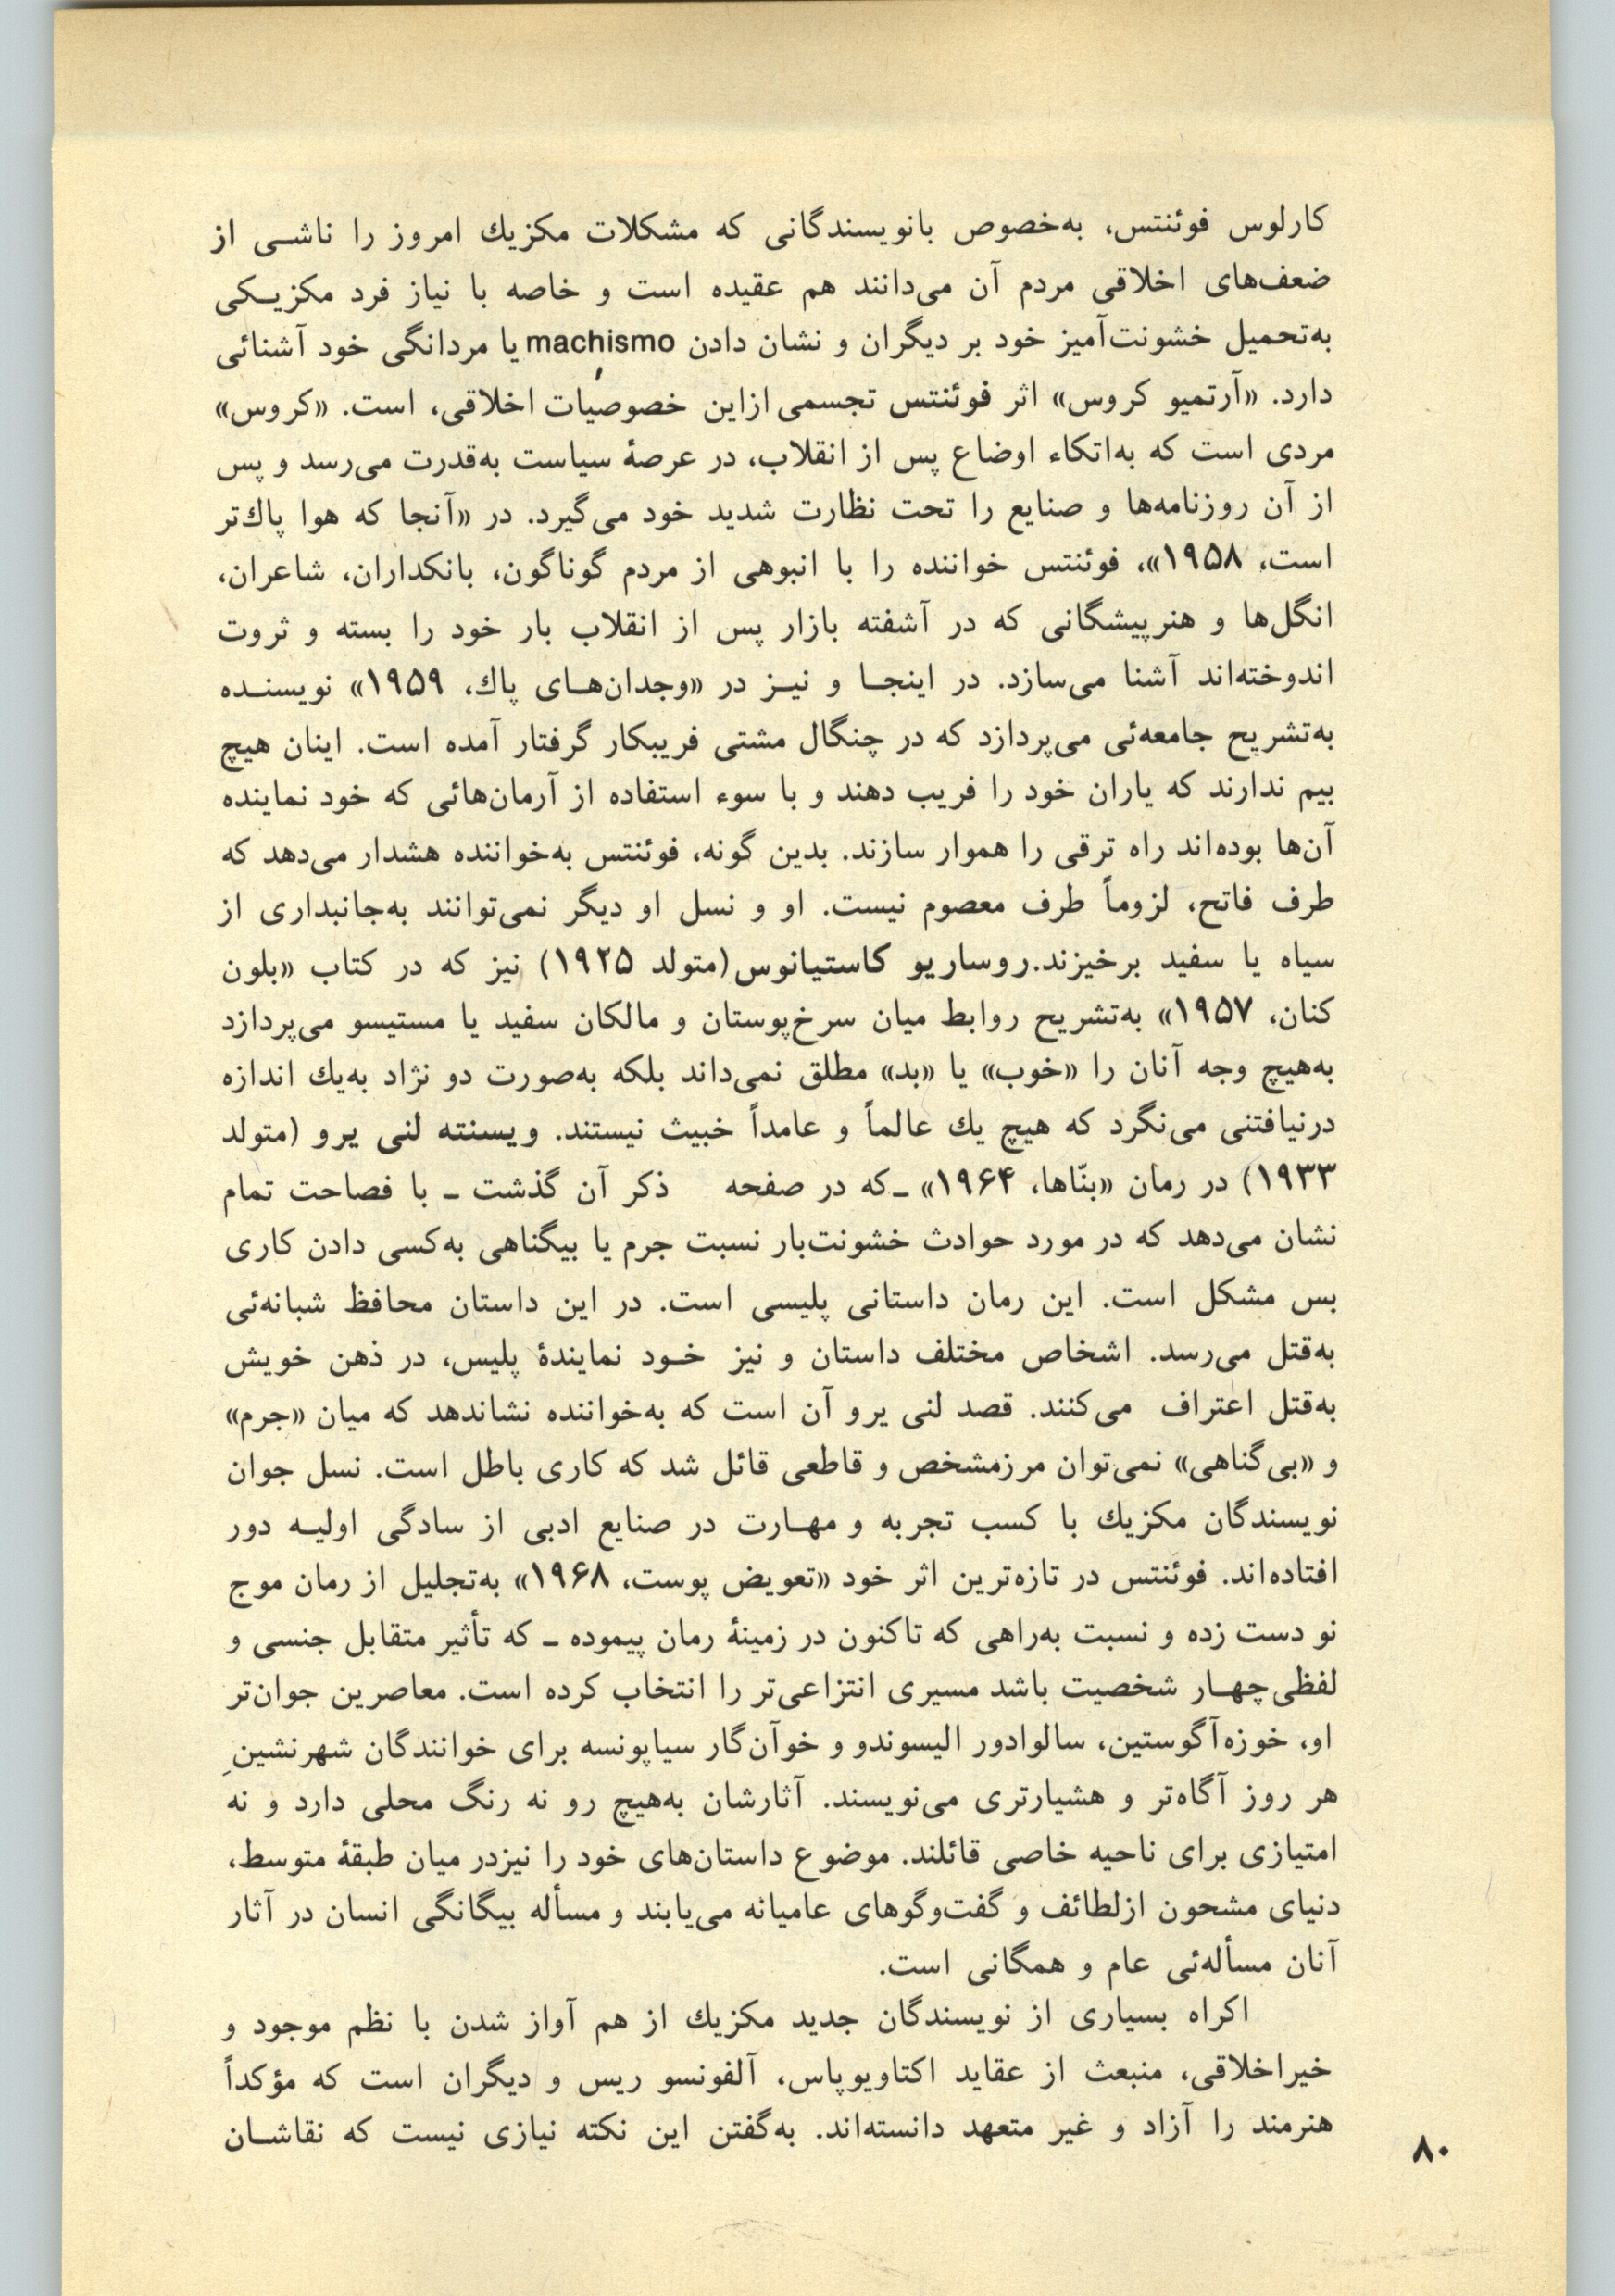 کارلوس فوئنتس، به‌خصوص بانویسندگانی که مشکلات مکزیك امروز را ناشـی از
ضعف‌های اخلاقی مردم آن می‌دانند هم عقیده است و خاصه با نیاز فرد مکزیـکی
به‌تحمیل خشونت‌آمیز خود بر دیگران و نشان دادن machismo یا مردانگی خود آشنائی
دارد. «آرتمیو کروس» اثر فوئنتس تجسمی ازاین خصوصیات اخلاقی، است. «کروس»
مردی است که به‌اتکاء اوضاع پس از انقلاب، در عرصهٔ سیاست به‌قدرت می‌رسد و پس
از آن روزنامه‌ها و صنایع را تحت نظارت شدید خود می‌گیرد. در «آنجا که هوا پاك‌تر
است، ۱۹۵۸»، فوئنتس خواننده را با انبوهی از مردم گوناگون، بانکداران، شاعران،
انگل‌ها و هنرپیشگانی که در آشفته بازار پس از انقلاب بار خود را بسته و ثروت
اندوخته‌اند آشنا می‌سازد. در اینجـا و نیـز در «وجدان‌هـای پاك، ۱۹۵۹» نویسنـده
به‌تشریح جامعه‌ئی می‌پردازد که در چنگال مشتی فریبکار گرفتار آمده است. اینان هیچ
بیم ندارند که یاران خود را فریب دهند و با سوء استفاده از آرمان‌هائی که خود نماینده
آن‌ها بوده‌اند راه ترقی را هموار سازند. بدین گونه، فوئنتس به‌خواننده هشدار می‌دهد که
طرف فاتح، لزوماً طرف معصوم نیست. او و نسل او دیگر نمی‌توانند به‌جانبداری از
سیاه یا سفید برخیزند.روساریو کاستیانوس(متولد ۱۹۲۵) نیز که در کتاب «بلون
کنان، ۱۹۵۷» به‌تشریح روابط میان سرخ‌پوستان و مالکان سفید یا مستیسو می‌پردازد
به‌هیچ وجه آنان را «خوب» یا «بد» مطلق نمی‌داند بلکه به‌صورت دو نژاد به‌یك اندازه
درنیافتنی می‌نگرد که هیچ یك عالماً و عامداً خبیث نیستند. ویسنته لنی یرو (متولد
۱۹۳۳) در رمان «بنّاها، ۱۹۶۴» ـ‌که در صفحه ذکر آن گذشت ـ با فصاحت تمام
نشان می‌دهد که در مورد حوادث خشونت‌بار نسبت جرم یا بیگناهی به‌کسی دادن کاری
بس مشکل است. این رمان داستانی پلیسی است. در این داستان محافظ شبانه‌ئی
به‌قتل می‌رسد. اشخاص مختلف داستان و نیز خـود نمایندهٔ پلیس، در ذهن خویش
به‌قتل اعتراف می‌کنند. قصد لنی یرو آن است که به‌خواننده نشاندهد که میان «جرم»
و «بی‌گناهی» نمی‌توان مرزمشخص و قاطعی قائل شد که کاری باطل است. نسل جوان
نویسندگان مکزیك با کسب تجربه و مهـارت در صنایع ادبی از سادگی اولیـه دور
افتاده‌اند. فوئنتس در تازه‌ترین اثر خود «تعویض پوست، ۱۹۶۸» به‌تجلیل از رمان موج
نو دست زده و نسبت به‌راهی که تاکنون در زمینهٔ رمان پیموده ـ که تأثیر متقابل جنسی و
لفظی‌چهـار شخصیت باشد مسیری انتزاعی‌تر را انتخاب کرده است. معاصرین جوان‌تر
او، خوزه‌آگوستین، سالوادور الیسوندو و خوآن‌گار سیاپونسه برای خوانندگان شهرنشینِ
هر روز آگاه‌تر و هشیارتری می‌نویسند. آثارشان به‌هیچ رو نه رنگ محلی دارد و نه
امتیازی برای ناحیه خاصی قائلند. موضوع داستان‌های خود را نیزدر میان طبقهٔ متوسط،
دنیای مشحون ازلطائف و گفت‌وگوهای عامیانه می‌یابند و مسأله بیگانگی انسان در آثار
آنان مسأله‌ئی عام و همگانی است.
اکراه بسیاری از نویسندگان جدید مکزیك از هم آواز شدن با نظم موجود و
خیراخلاقی، منبعث از عقاید اکتاویوپاس، آلفونسو ریس و دیگران است که مؤکداً
هنرمند را آزاد و غیر متعهد دانسته‌اند. به‌گفتن این نکته نیازی نیست که نقاشـان
۸۰